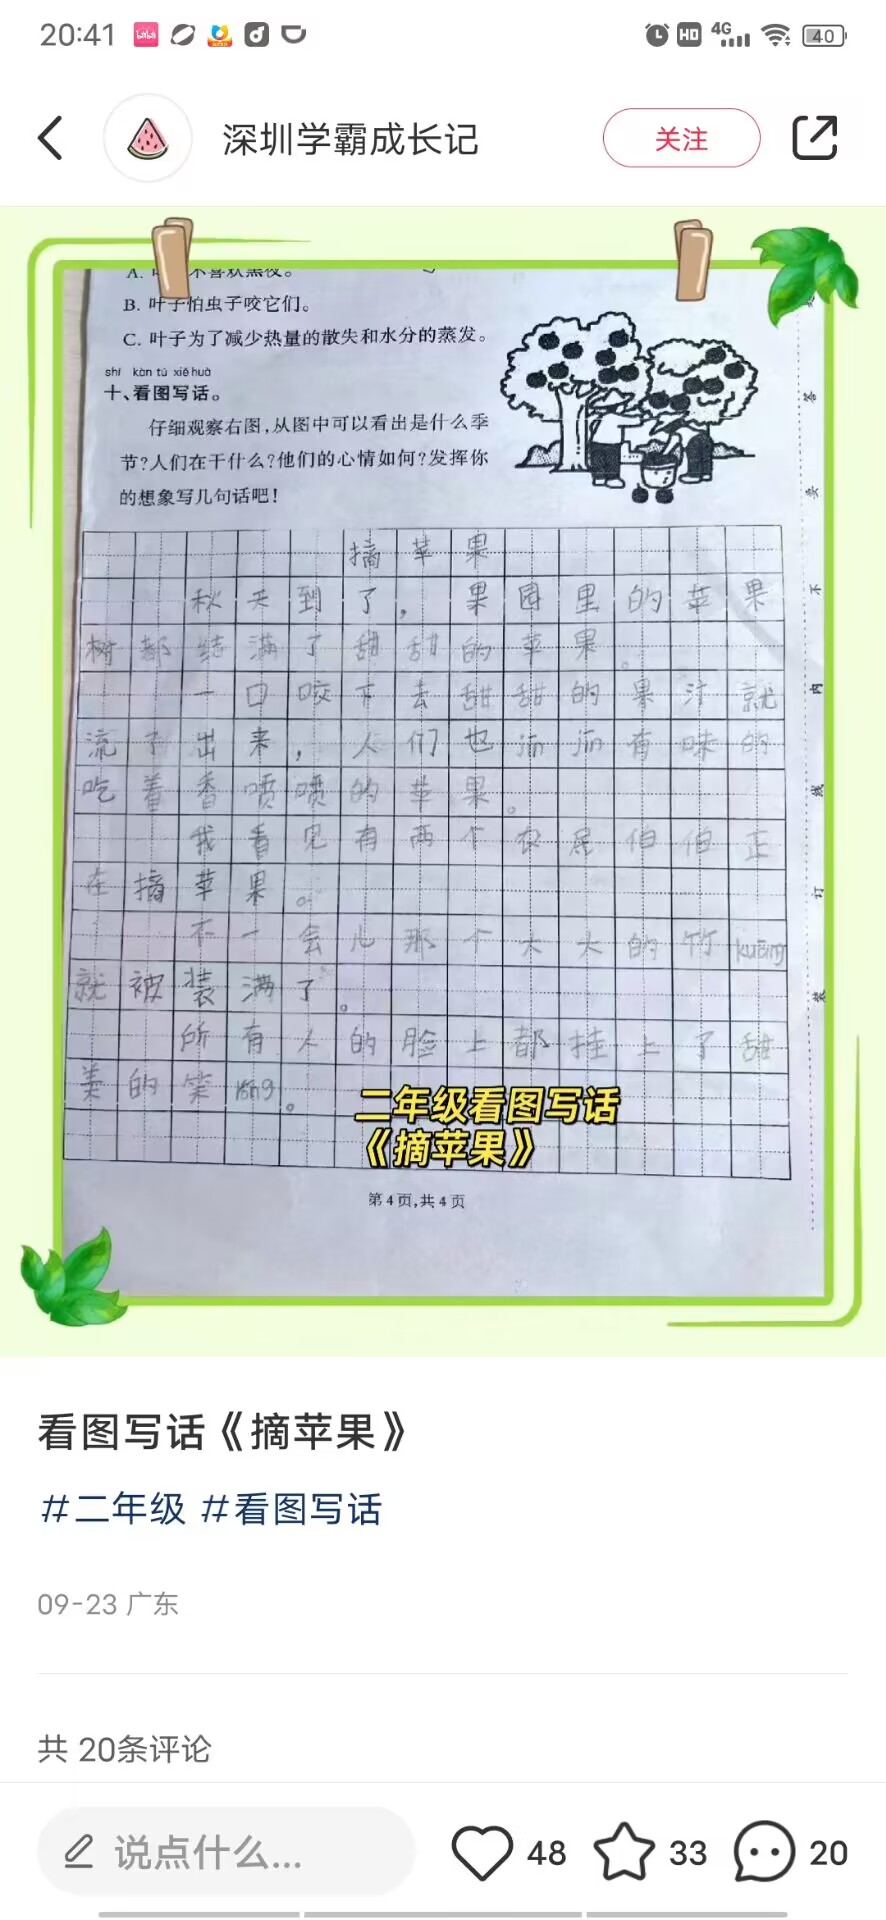 20:41
4G
HD
40
深圳学霸成长记
关注
B. 叶子怕虫子咬它们。
C. 叶子为了减少热量的散失和水分的蒸发。
shí kàn tú xiě huà
十、看图写话。
仔细观察右图,从图中可以看出是什么季
节?人们在干什么?他们的心情如何?发挥你
的想象写几句话吧!
摘苹果
秋天到了，果园里的苹果
树都结满了甜甜的苹果。
一口咬下去甜甜的果汁就
流了出来，人们也津津有味的
吃着香喷喷的苹果。
我看见有两个农民伯伯正
在摘苹果。
不一会儿那个大大的竹kuāng
就被装满了。
所有人的脸上都挂上了甜
美的笑róng。
二年级看图写话
《摘苹果》
第4页,共4页
看图写话《摘苹果》
#二年级 #看图写话
09-23 广东
共 20条评论
说点什么...
48
33
20